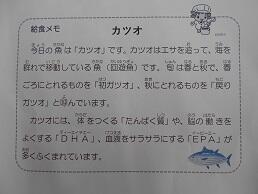 給食メモ
カツオ
今日の魚は「カツオ」です。カツオはエサを追って、海を
群れで移動している魚（回遊魚）です。旬は春と秋で、春
ごろにとれるものを「初ガツオ」、秋にとれるものを「戻り
ガツオ」と呼んでいます。
カツオには、体をつくる「たんぱく質」や、脳の働きを
よくする「ＤＨＡ」、血液をサラサラにする「ＥＰＡ」が
多くふくまれています。